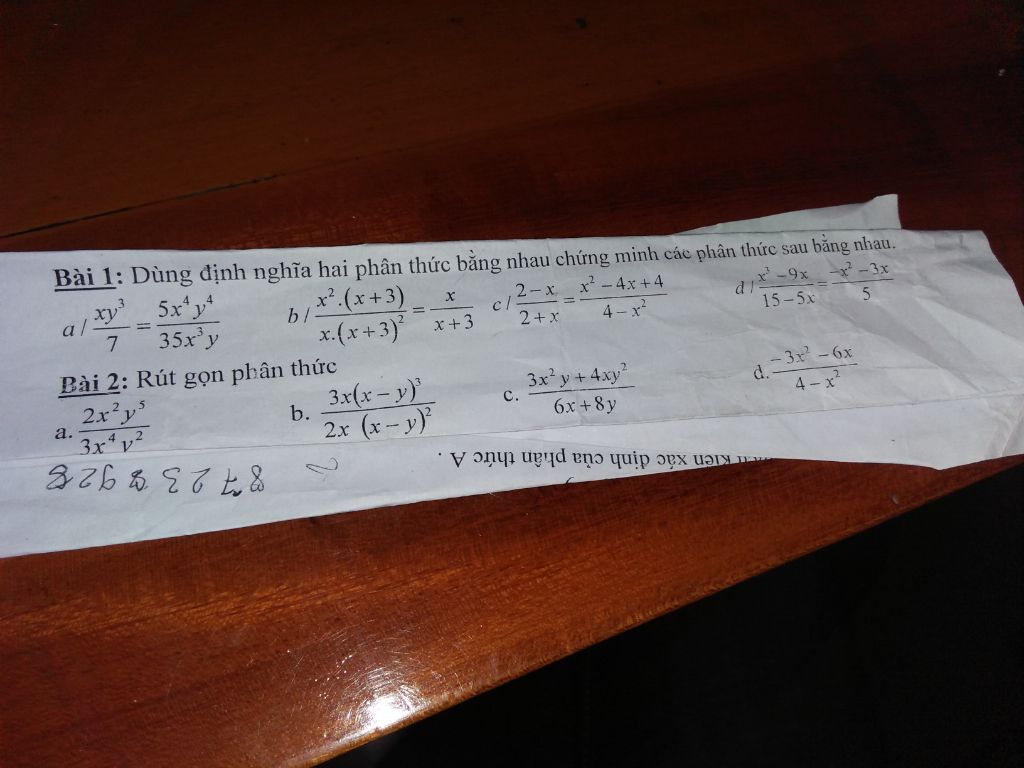 Bài 1: Dùng định nghĩa hai phân thức bằng nhau chứng minh các phân thức sau bằng nhau.
a / \frac{xy^3}{7} = \frac{5x^4y^4}{35x^3y} b / \frac{x^2.(x+3)}{x.(x+3)^2} = \frac{x}{x+3} c / \frac{2-x}{2+x} = \frac{x^2-4x+4}{4-x^2} d / \frac{x^3-9x}{15-5x} = \frac{-x^2-3x}{5}
Bài 2: Rút gọn phân thức
a. \frac{2x^2y^5}{3x^4y^2} b. \frac{3x(x-y)^3}{2x (x-y)^2} c. \frac{3x^2y+4xy^2}{6x+8y} d. \frac{-3x^2-6x}{4-x^2}
kiện xác định của phân thức A .